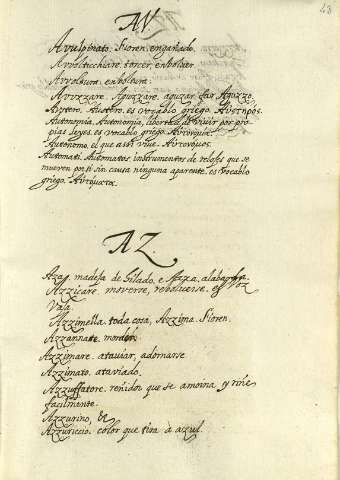 48
AV
Avulpinato. Fioren. engañado.
Avvolticchiare. torcer, enbolver
Avvoltura. enboltura.
Avuzzare. Aguzzare. aguzar. fax Aguzzo.
Avtero. Austero. es vocablo griego. Αυστηρός.
Autonomia. Autonomia, libertad de vivir por pro-
pias leyes. es vocablo griego. Αυτονομία.
Autonomo. el que assi vive. Αυτονομος.
Automati. Automatos. instrumentos de relojes que se
mueven por si sin causa ninguna aparente. es vocablo
griego. Αυτόματα.
AZ.
Aza. madeja de hilado, e
Azzicare. moverse, rebolverse. es Voz
Vala.
Azzimella. toda cosa, Azzima. Fioren.
Azzannate. morder.
Azzimare. ataviar, adornarse
Azzimato. ataviado.
Azzuffatore. reñidor que se amoina y riñe
facilmente.
Azzurino, &
Azzuriccio. color que tira a azul.